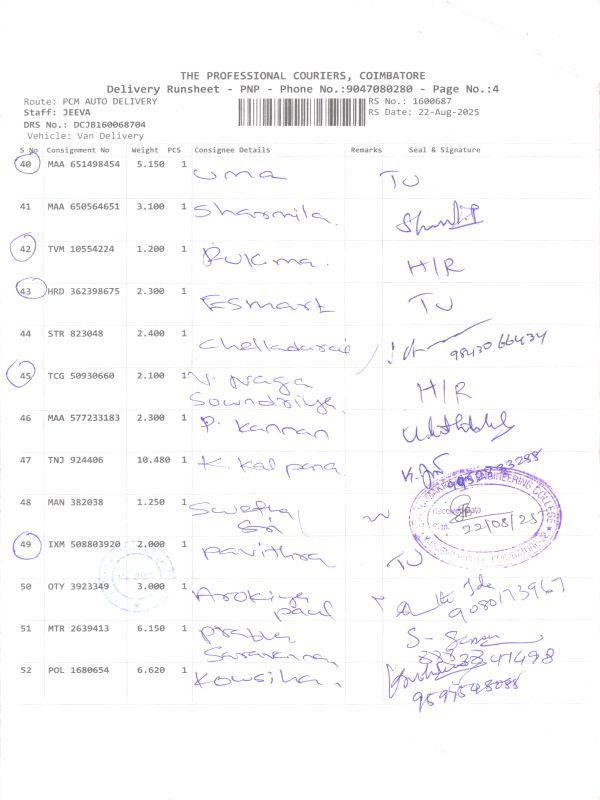 THE PROFESSIONAL COURIERS, COIMBATORE
Delivery Runsheet - PNP - Phone No.:9047080280 - Page No.:4
Route: PCM AUTO DELIVERY
RS No.: 1600687
Staff: JEEVA
RS Date: 22-Aug-2025
DRS No.: DCJB160068704
Vehicle: Van Delivery
S No Consignment No Weight PCS Consignee Details Remarks Seal & Signature
40 MAA 651498454 5.150 1 uma TU
41 MAA 650564651 3.100 1 Sharmila.
42 TVM 10554224 1.200 1 Rukma. H/R
43 HRD 362398675 2.300 1 ESmart TU
44 STR 823048 2.400 1 Chelladurai 9843066434
45 TCG 50930660 2.100 1 V. Naga H/R
Soundriya.
46 MAA 577233183 2.300 1 P. Kannan
47 TNJ 924406 10.480 1 K. Kalpana
48 MAN 382038 1.250 1 Swetha
Sri
ENGINEERING COLLEGE
22/08/25
49 IXM 508803920 2.000 1 Pavithra TU
50 OTY 3923349 3.000 1 Arokiya
paul 9080173967
51 MTR 2639413 6.150 1 Prabhu
Saravanan
52 POL 1680654 6.620 1 Kowsika.